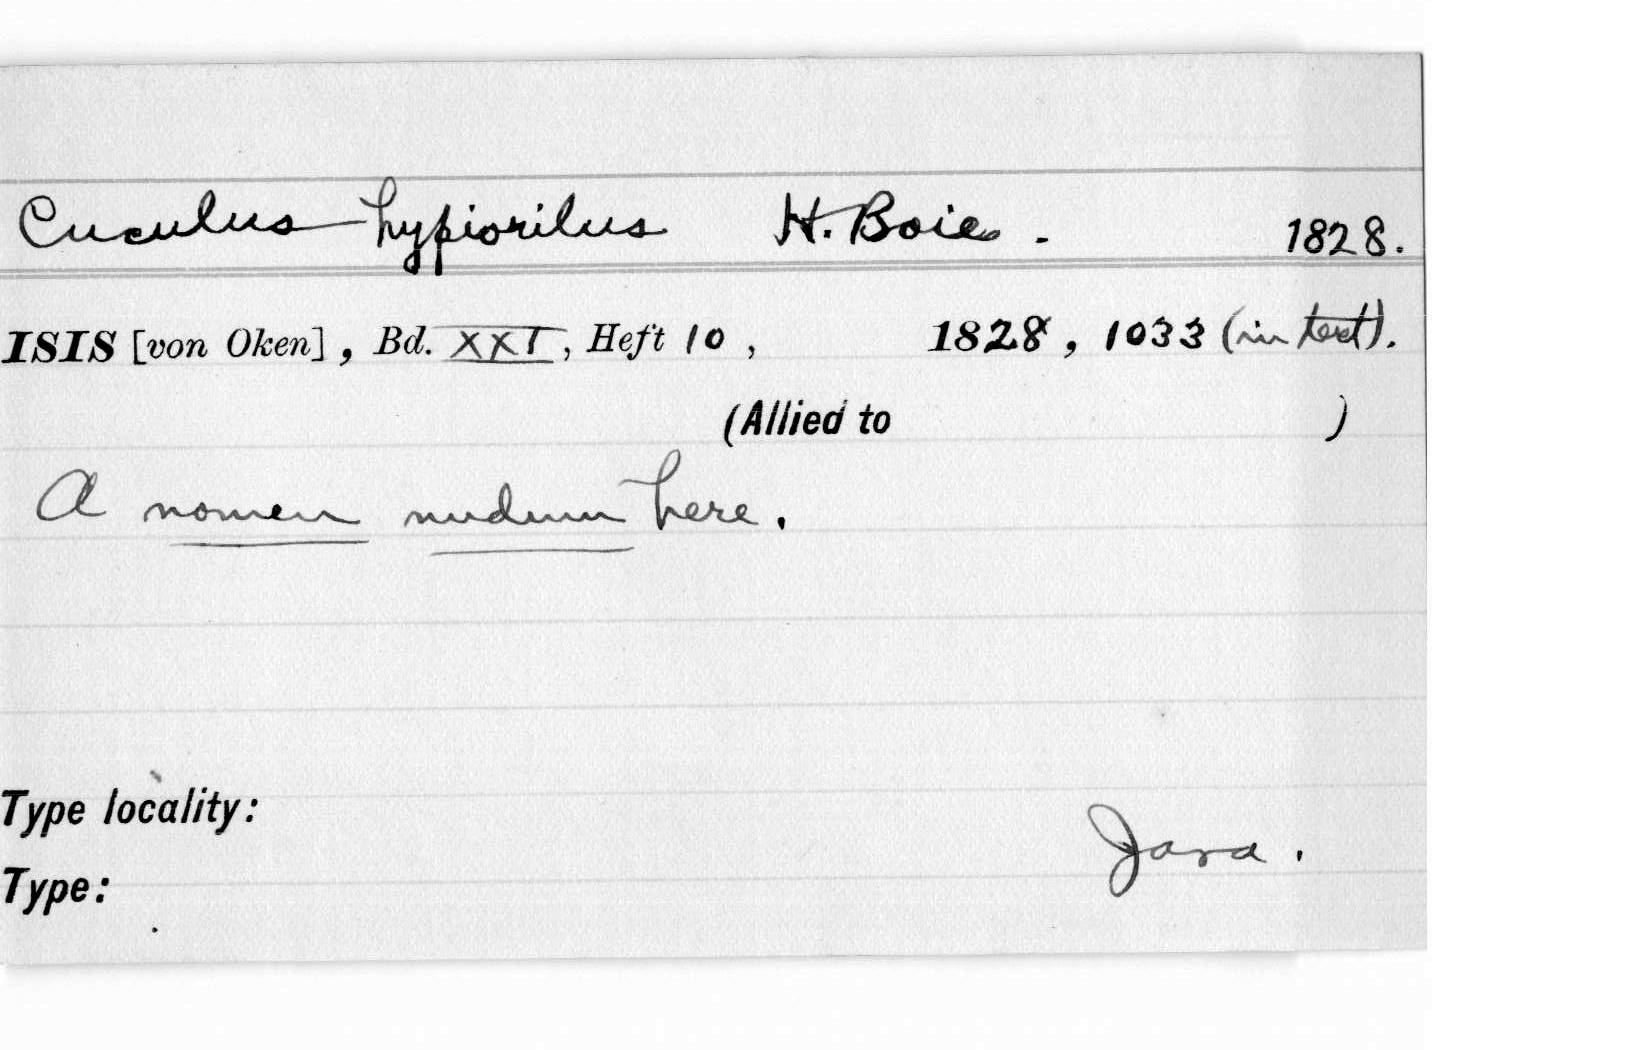 Cuculus hypiorilus H. Boie. 1828.
ISIS [von Oken], Bd. XXI, Heft 10, 1828, 1033 (in text).
(Allied to )
A nomen nudum here.
Type locality:
Java.
Type: